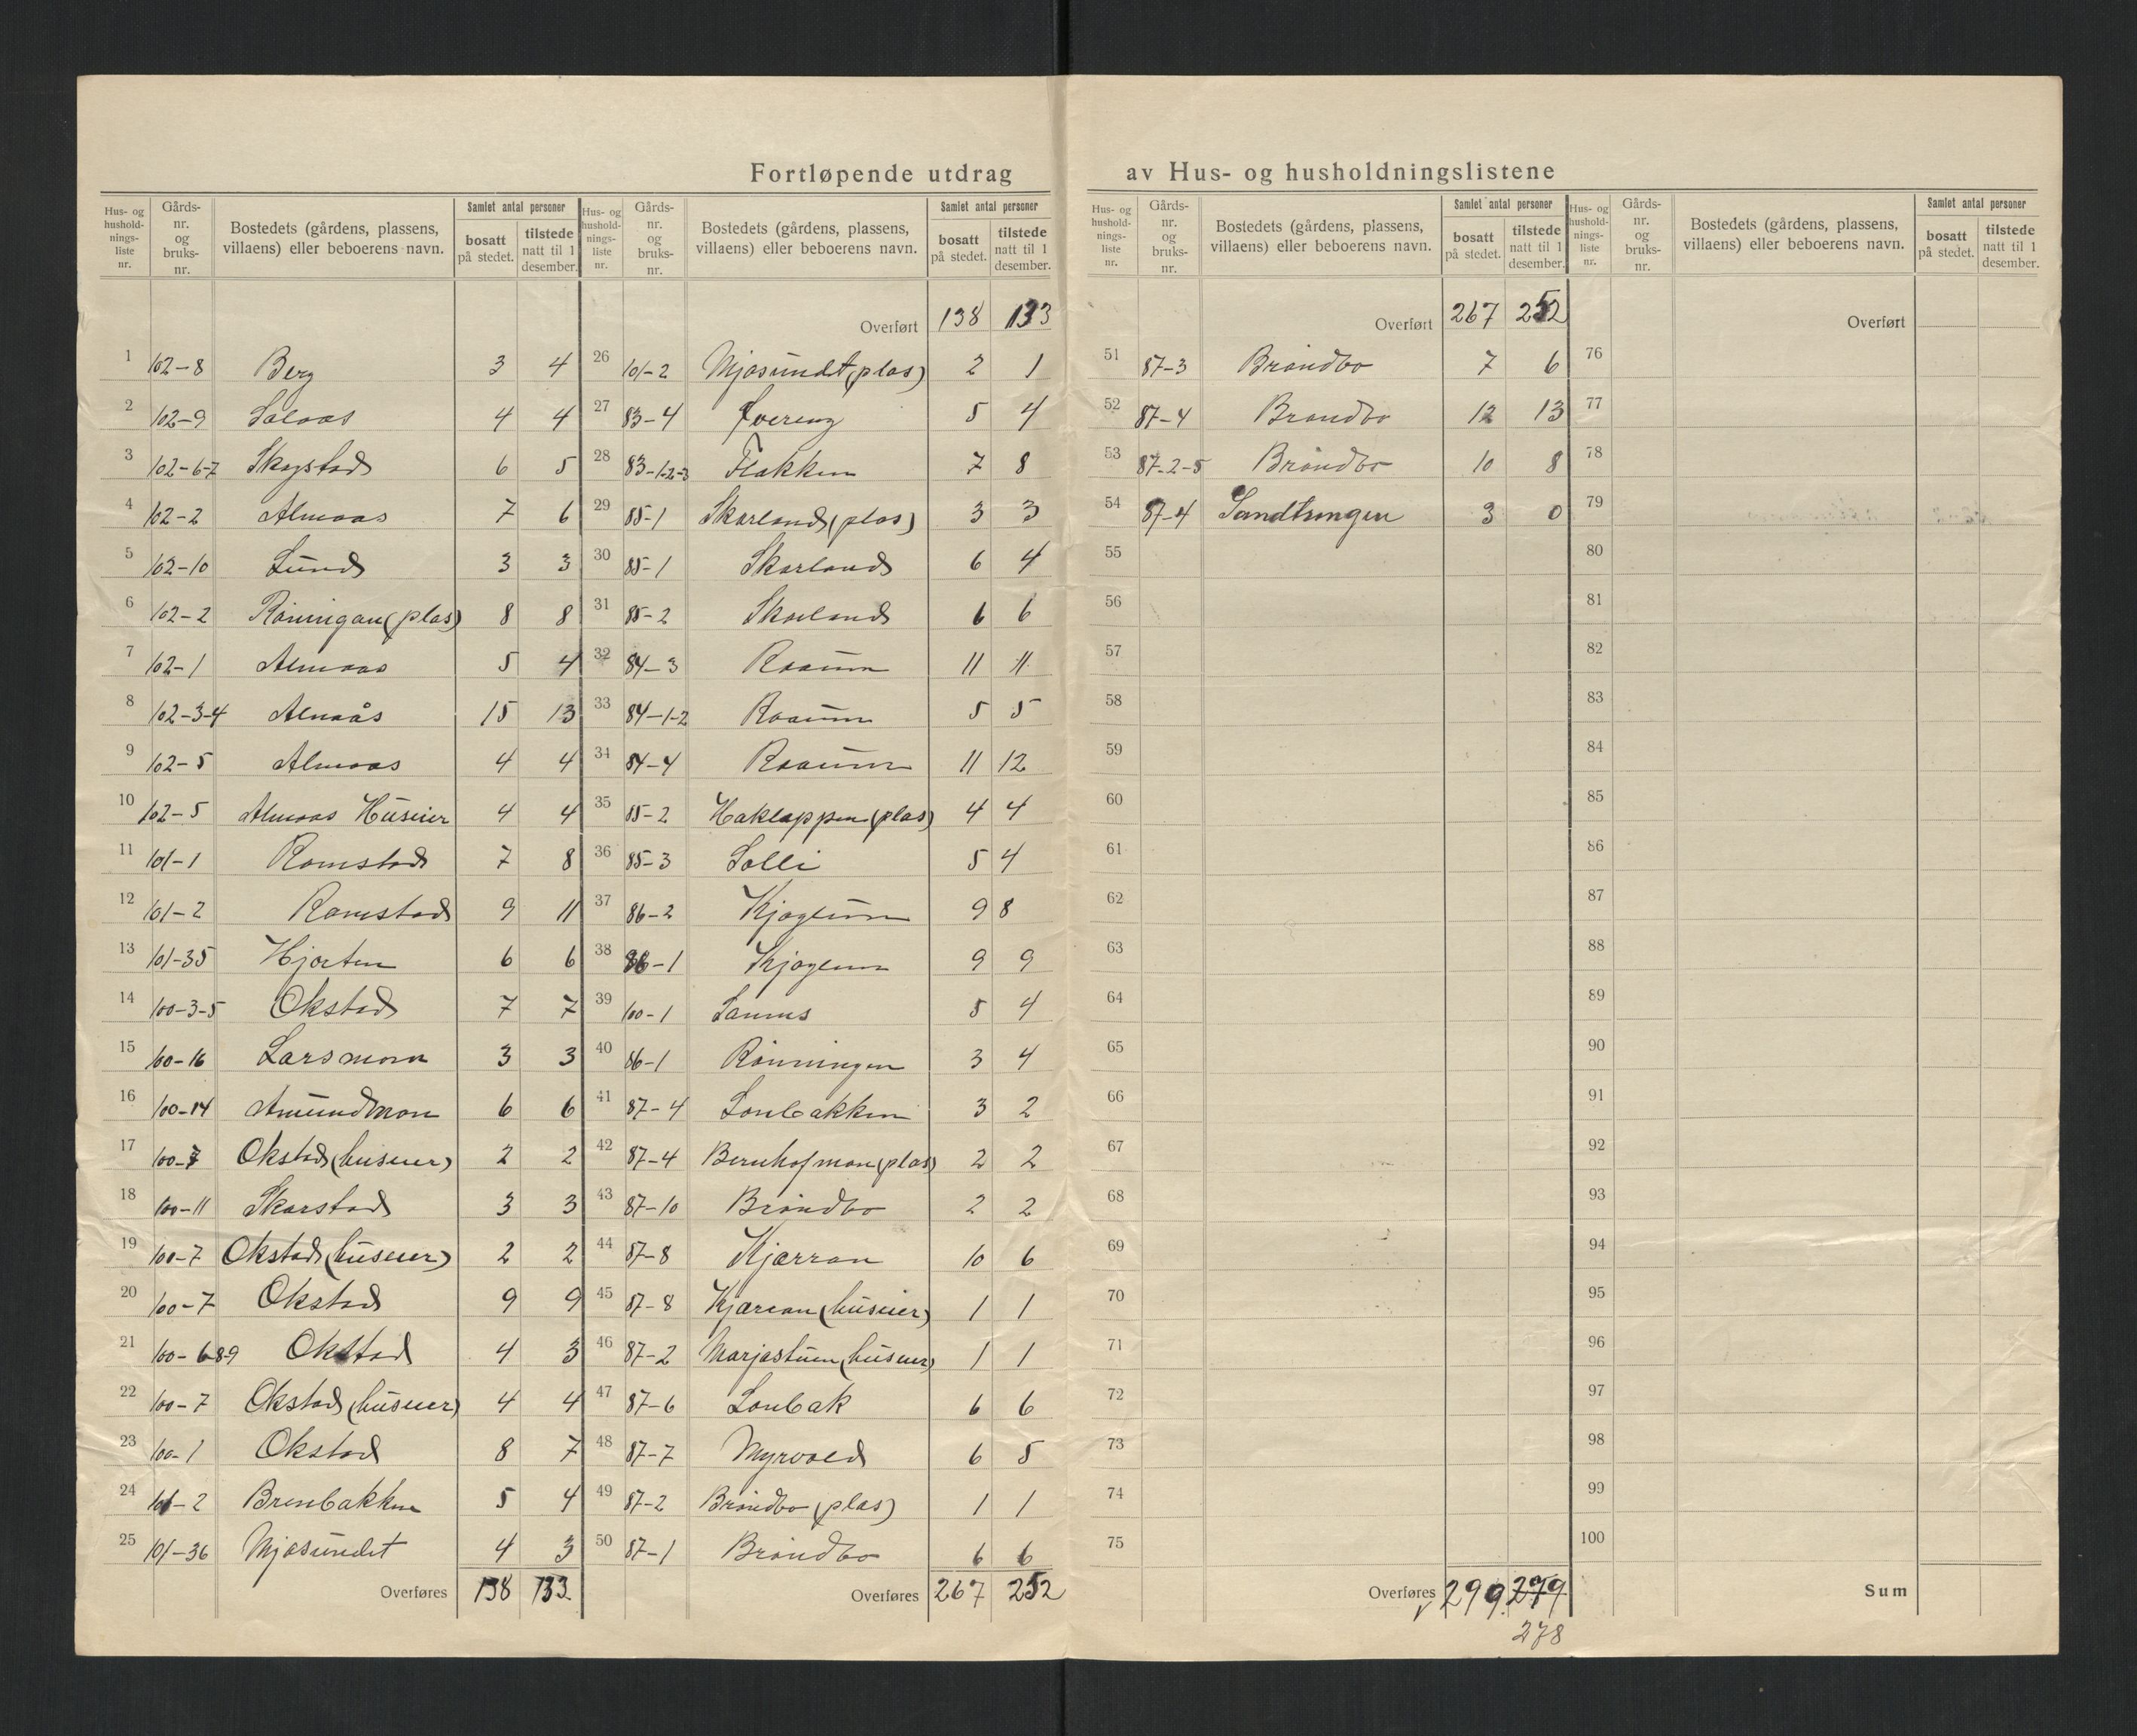 Fortløpende utdrag av Hus- og husholdningslistene
Hus- og husholdnings-liste nr. Gårds-nr. og bruks-nr. Bostedets (gårdens, plassens, villaens) eller beboerens navn. Samlet antal personer bosatt på stedet. tilstede natt til 1 desember.
1 102-8 Berg 3 4
2 102-9 Solaas 4 4
3 102-6-7 Skogstad 6 5
4 102-2 Almaas 7 6
5 102-10 Lund 3 3
6 102-2 Röningan (plas) 8 8
7 102-1 Almaas 5 4
8 102-3-4 Almaås 15 13
9 102-5 Almaas 4 4
10 102-5 Almaas Húseier 4 4
11 101-1 Romstad 7 8
12 101-2 Romstad 9 11
13 101-35 Hjorten 6 6
14 100-3-5 Okstad 7 7
15 100-16 Larsmorn 3 3
16 100-14 Amundmon 6 6
17 100-7 Okstad (huseier) 2 2
18 100-11 Skarstad 3 3
19 100-7 Okstad (huseier) 2 2
20 100-7 Okstad 9 9
21 100-689 Okstad 4 3
22 100-7 Okstad (huseier) 4 4
23 100-1 Okstad 8 7
24 101-2 Brenbakken 5 4
25 101-36 Mjosundet 4 3
Overføres 138 133
Hus- og hushold-nings-liste nr. Gårds-nr. og bruks-nr. Bostedets (gårdens, plassens, villaens) eller beboerens navn. Samlet antal personer bosatt på stedet. tilstede natt til 1 desember.
Overført 138 133
26 101-2 Mjosundet (plas) 2 1
27 83-4 5 4
28 83-1-2-3 Flakken 7 8
29 85-1 Skarland (plas) 3 3
30 85-1 Skarland 6 4
31 85-2 Skarland 6 6
32 84-3 Raaum 11 11
33 84-1-2 Raaum 5 5
34 84-4 Raaum 11 12
35 85-2 Haklappen (plas) 4 4
36 85-3 Solli 5 4
37 86-2 Kjøglum 9 8
38 86-1 9 9
39 100-1 5 4
40 86-1 Rönningen 3 4
41 87-4 Lonbakken 3 2
42 87-4 Bernhofmon (plas) 2 2
43 87-10 Bröndbo 2 2
44 87-8 Kjærran 10 6
45 87-8 Kjærran (huseier) 1 1
46 87-2 Marjastuen (huseier) 1 1
47 87-6 Lonbak 6 6
48 87-7 Myrvold 6 5
49 87-2 Bröndbo (plas) 1 1
50 87-1 Bröndbo 6 6
Overføres 267 252
Hus- og hushold-nings-liste nr. Gårds-nr. og bruks-nr. Bostedets (gårdens, plassens, villaens) eller beboerens navn. Samlet antal personer bosatt på stedet. tilstede natt til 1 desember.
Overført 267 252
51 87-3 Bröndbo 7 6
52 87-4 Brøndbo 12 13
53 87-2-5 Bröndbo 10 8
54 87-4 3 0
55
56
57
58
59
60
61
62
63
64
65
66
67
68
69
70
71
72
73
74
75
Overføres 299 279
278
Hus- og hushold-nings-liste nr. Gårds-nr. og bruks-nr. Bostedets (gårdens, plassens, villaens) eller beboerens navn. Samlet antal personer bosatt på stedet. tilstede natt til 1 desember.
Overført
76
77
78
79
80
81
82
83
84
85
86
87
88
89
90
91
92
93
94
95
96
97
98
99
100
Sum